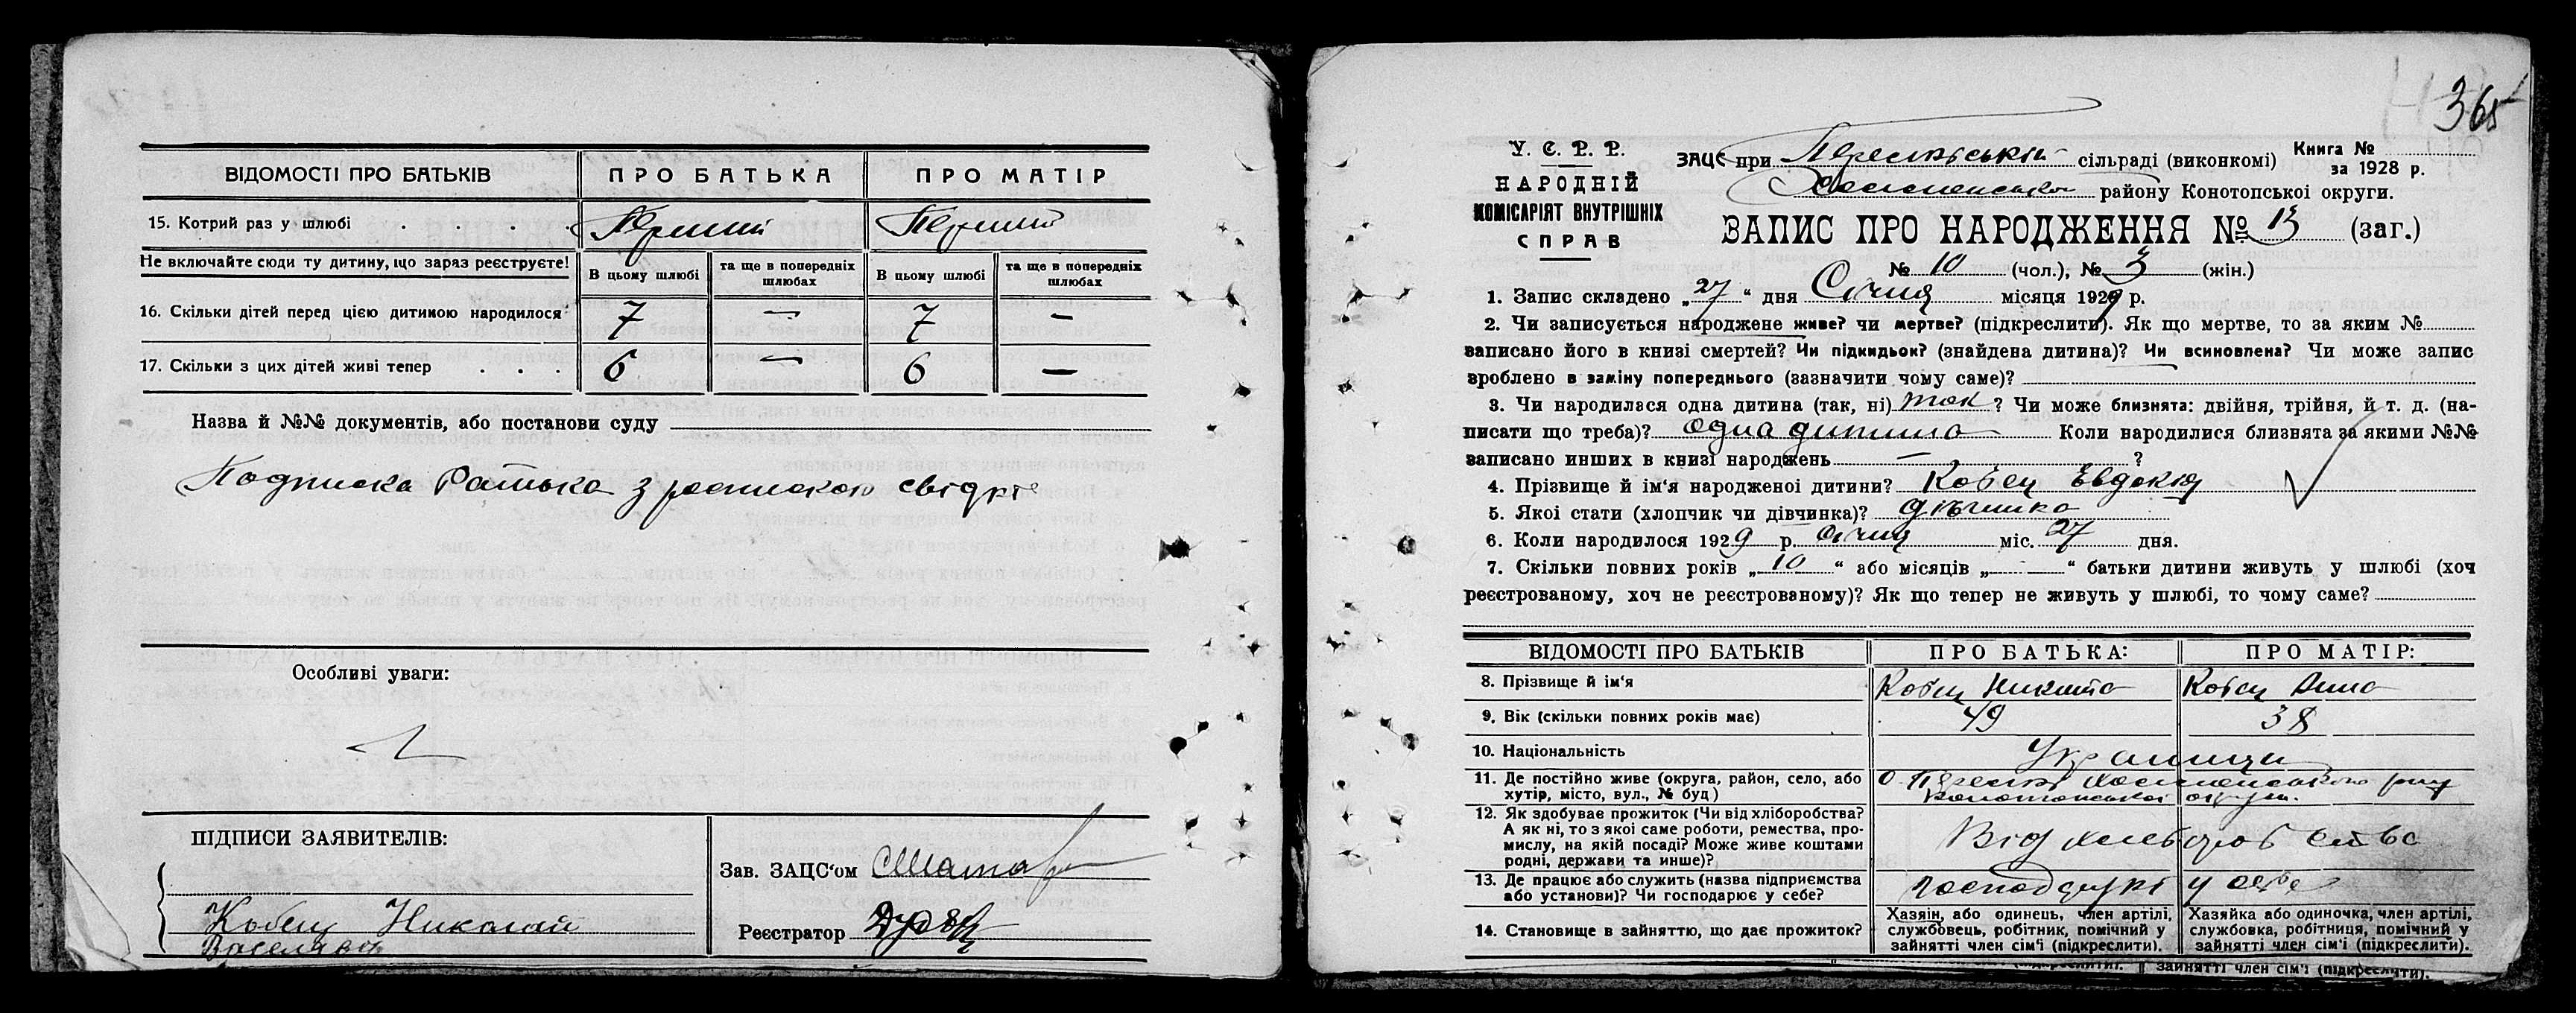 ВІДОМОСТІ ПРО БАТЬКІВ
ПРО БАТЬКА
ПРО МАТІР
15. Котрий раз у шлюбі . . . .
Перший
Перший
Не включайте сюди ту дитину, що зараз реєструєте!
В цьому шлюбі
та ще в попередніх шлюбах
В цьому шлюбі
та ще в попередніх шлюбах
16. Скільки дітей перед цією дитиною народилося
7 — 7 —
17. Скільки з цих дітей живі тепер . . .
6 — 6 —
Назва й №№ документів, або постанови суду
Подписка батька з роспискою свідків
Особливі уваги:
ПІДПИСИ ЗАЯВИТЕЛІВ:
Кобец Николай
Зав. ЗАЦС'ом
Реєстратор
365
У. С. Р. Р.
НАРОДНІЙ
КОМІСАРІЯТ ВНУТРІШНІХ
СПРАВ
ЗАЦС при сільраді (виконкомі)
Книга №
за 1928 р.
району Конотопської округи.
ЗАПИС ПРО НАРОДЖЕННЯ № 13 (заг.)
№ 10 (чол.), № 3 (жін.)
1. Запис складено „27“ дня Січня місяця 1929 р.
2. Чи записується народжене живе? чи мертве? (підкреслити). Як що мертве, то за яким №
записано його в книзі смертей? Чи підкидьок? (знайдена дитина)? Чи всиновлена? Чи може запис
зроблено в заміну попереднього (зазначити чому саме)?
3. Чи народилася одна дитина (так, ні) так ? Чи може близнята: двійня, трійня, й т. д. (на-
писати що треба)? одна дитина Коли народилися близнята за якими №№
записано инших в книзі народжень — ?
4. Прізвище й ім'я народженої дитини? Кобец Евдокія
5. Якої стати (хлопчик чи дівчинка)? дівчинка
6. Коли народилося 1929 р. січня міс. 27 дня.
7. Скільки повних років „10“ або місяців „—“ батьки дитини живуть у шлюбі (хоч
реєстрованому, хоч не реєстрованому)? Як що тепер не живуть у шлюбі, то чому саме?
ВІДОМОСТІ ПРО БАТЬКІВ
ПРО БАТЬКА:
ПРО МАТІР:
8. Прізвище й ім'я
Кобец Никита
Кобец Анна
9. Вік (скільки повних років має)
49
38
10. Національність
Українці
11. Де постійно живе (округа, район, село, або
хутір, місто, вул., № буд)
Конотопської округи.
12. Як здобуває прожиток (Чи від хліборобства?
А як ні, то з якої саме роботи, ремества, про-
мислу, на якій посаді? Може живе коштами
родні, держави та инше)?
Від хлеборобства
13. Де працює або служить (назва підприємства
або установи)? Чи господарює у себе?
у себе
14. Становище в зайняттю, що дає прожиток?
Хазяїн, або одинець, член артілі,
службовець, робітник, помічний у
зайнятті член сім'ї (підкреслити).
Хазяйка або одиночка, член артілі,
службовка, робітниця, помічний у
зайнятті член сім'ї (підкреслити).
зайнятті член сім'ї (підкреслити).